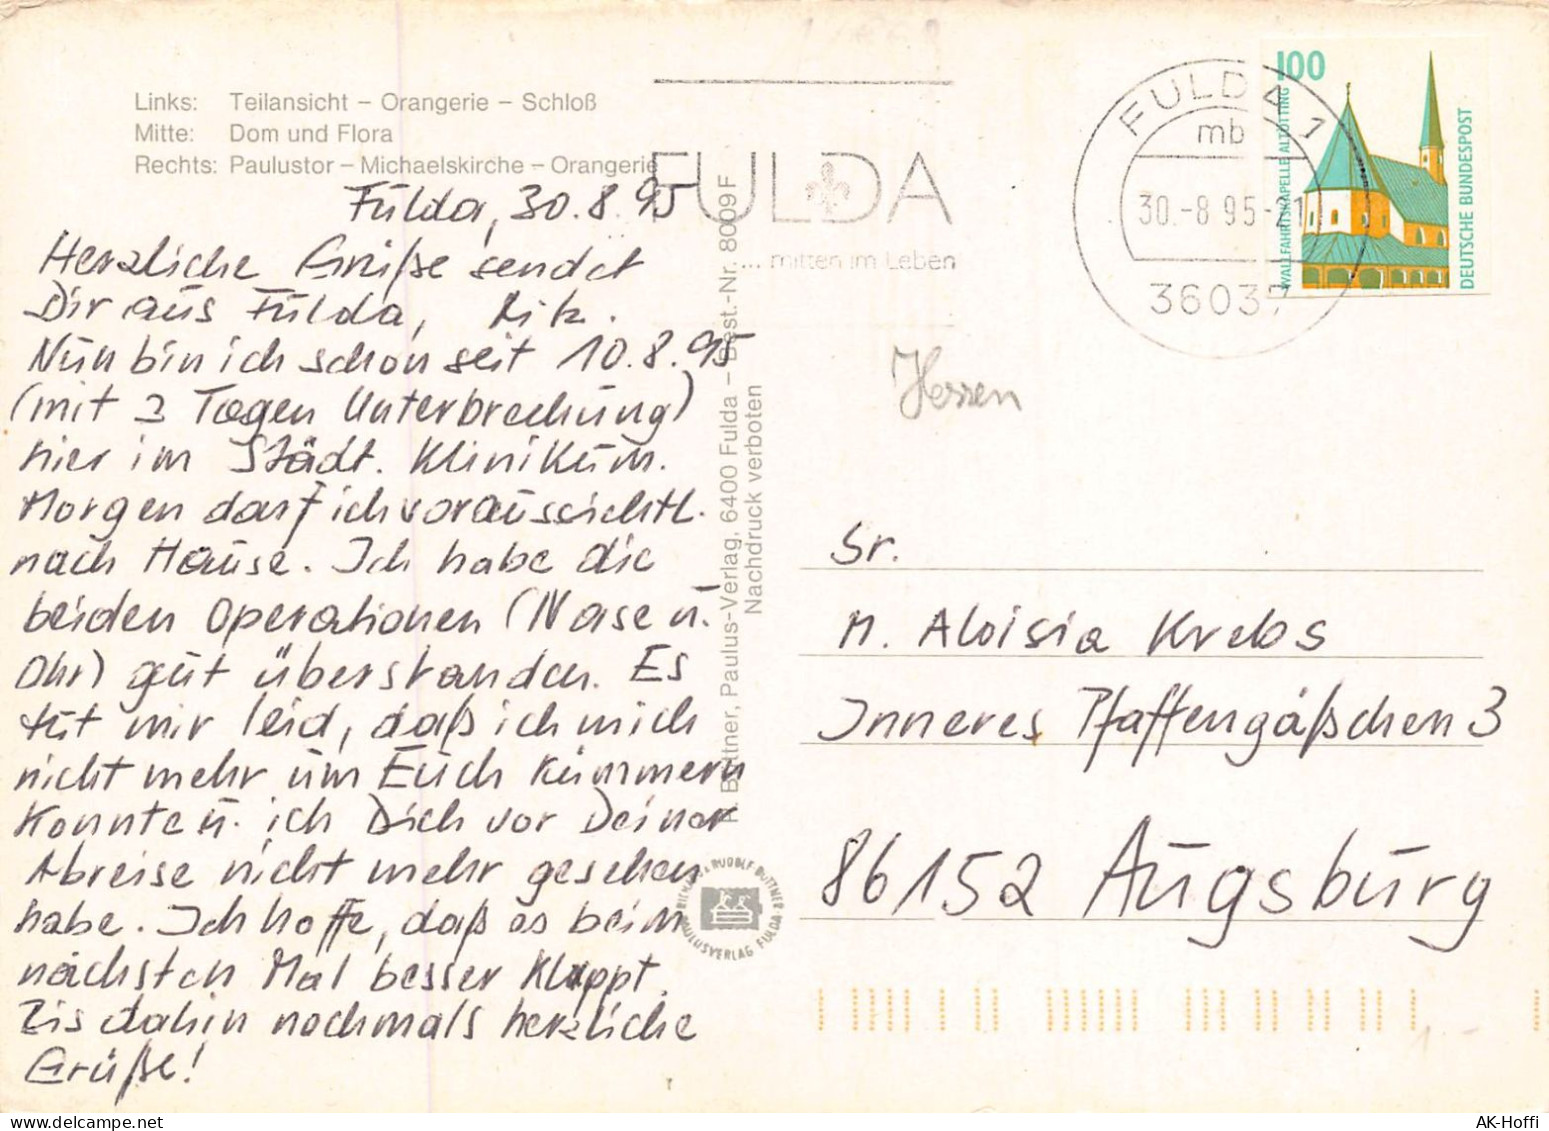 Links: Teilansicht – Orangerie – Schloß
Mitte: Dom und Flora
Rechts: Paulustor – Michaelskirche – Orangerie
Fulda, 30.8.95
Herzliche Grüße sendet
Dir aus Fulda,
Nun bin ich schon seit 10.8.95
(mit 3 Tagen Unterbrechung)
hier im Städt. Klinikum.
Morgen darf ich voraussichtl.
nach Hause. Ich habe die
beiden Operationen (Nase u.
Ohr) gut überstanden. Es
tut mir leid, daß ich mich
nicht mehr um Euch kümmern
konnte u. ich Dich vor Deiner
Abreise nicht mehr gesehen
habe. Ich hoffe, daß es beim
nächsten Mal besser klappt.
Bis dahin nochmals herzliche
Grüße!
FULDA
... mitten im Leben
Büttner, Paulus-Verlag, 6400 Fulda – Best.-Nr. 8009 F
Nachdruck verboten
& RUDOLF BÜTTNER
PAULUSVERLAG FULDA
FULDA 1
mb
30.-8 95-21
36037
100
WALLFAHRTSKAPELLE ALTÖTTING
DEUTSCHE BUNDESPOST
Hessen
Sr.
M. Aloisia Krebs
Inneres Pfaffengäßchen 3
86152 Augsburg
1.-
AK-Hoffi